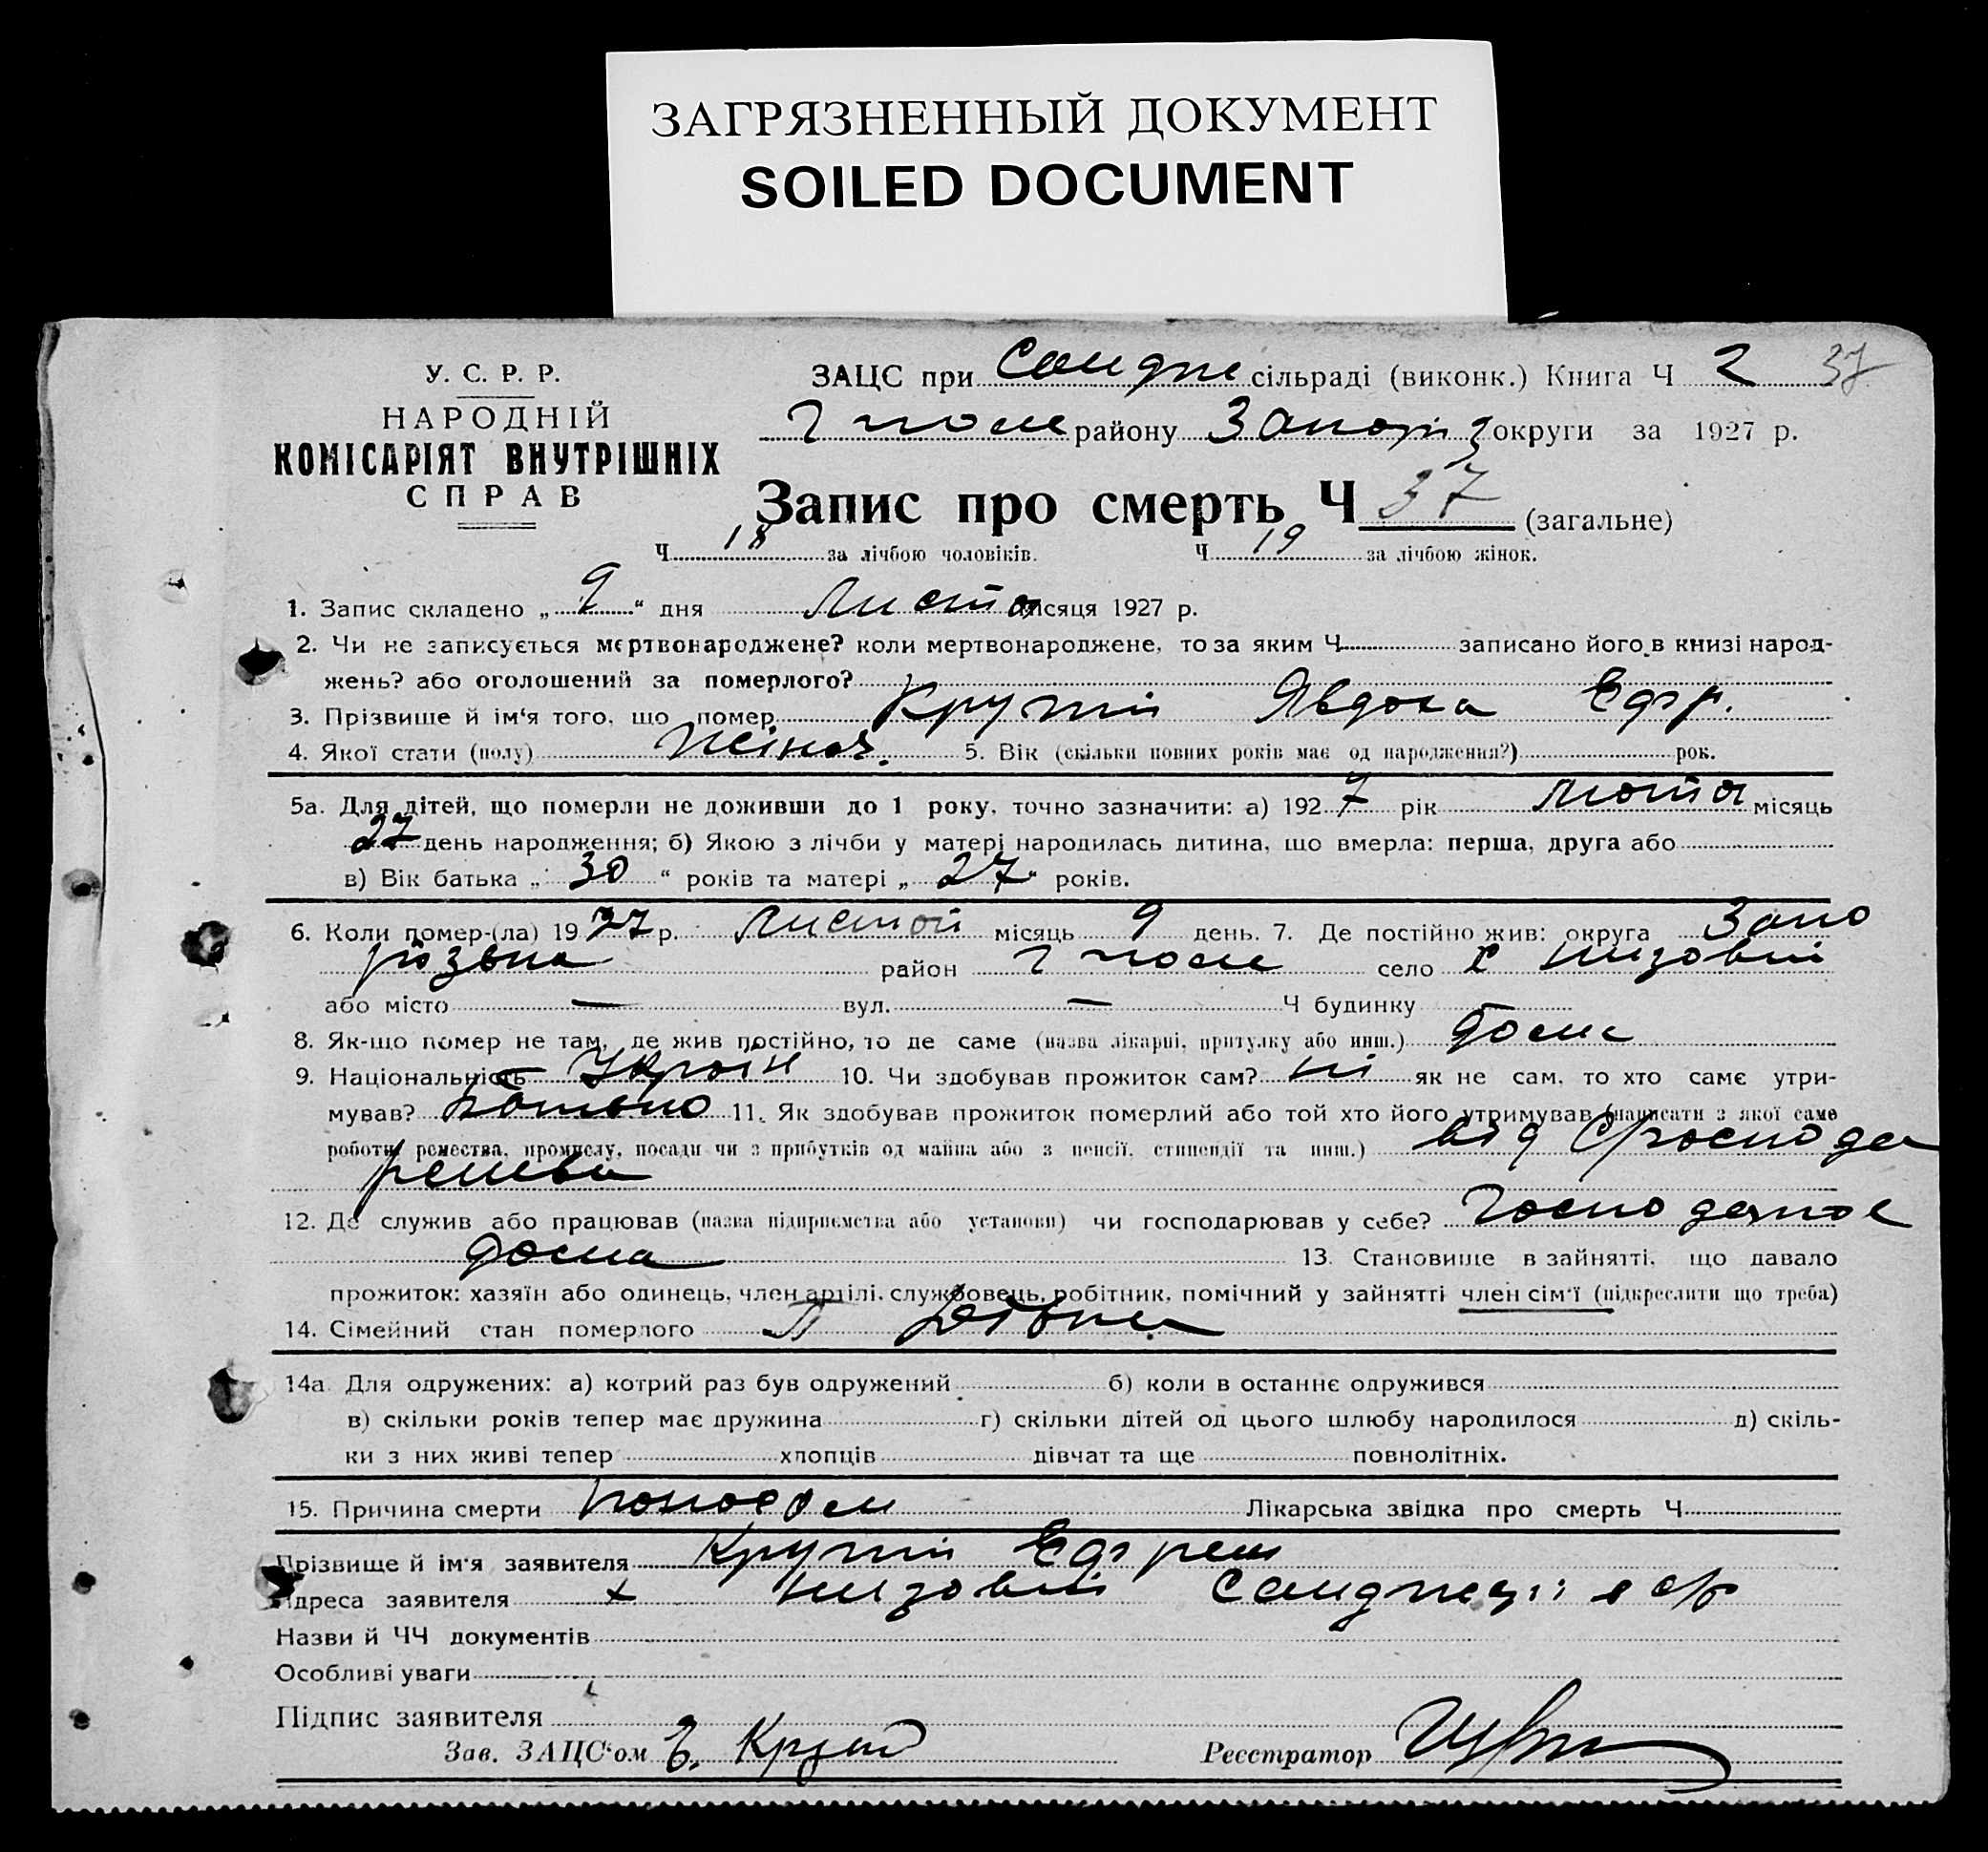 ЗАГРЯЗНЕННЫЙ ДОКУМЕНТ
SOILED DOCUMENT
У. С. Р. Р.
НАРОДНІЙ
КОМІСАРІЯТ ВНУТРІШНІХ
СПРАВ
ЗАЦС при сільраді (виконк.) Книга Ч 2 37
району округи за 1927 р.
Запис про смерть Ч 37 (загальне)
Ч 18 за лічбою чоловіків. Ч 19 за лічбою жінок.
1. Запис складено „ 9 “ дня Листоп місяця 1927 р.
2. Чи не записується мертвонароджене? коли мертвонароджене, то за яким Ч записано його в книзі народ-
жень? або оголошений за померлого?
3. Прізвише й ім‘я того, що помер Крутій Явдоха
4. Якої стати (полу) жіноч. 5. Вік (скільки повних років має од народження?) рок.
5а. Для дітей, що померли не доживши до 1 року, точно зазначити: а) 192 7 рік Люто місяць
27 день народження; б) Якою з лічби у матері народилась дитина, що вмерла: перша, друга або
в) Вік батька „ 30 “ років та матері „ 27 “ років.
6. Коли помер-(ла) 19 27 р. Листоп місяць 9 день. 7. Де постійно жив: округа Запо
різька район село х Низовий
або місто — вул. — Ч будинку
8. Як-що помер не там, де жив постійно, то де саме (назва лікарні, притулку або инш.) дома
9. Національність Україн 10. Чи здобував прожиток сам? ні як не сам, то хто саме утри-
мував? батько 11. Як здобував прожиток померлий або той хто його утримував (написати з якої саме
роботи, ремества, промислу, посади чи з прибутків од майна або з пенсії, стипендії та инш.) від
12. Де служив або працював (назва підприємства або установи) чи господарював у себе?
дома 13. Становище в зайнятті, що давало
прожиток: хазяїн або одинець, член артілі, службовець, робітник, помічний у зайнятті член сім‘ї (підкреслити що треба)
14. Сімейний стан померлого
14а. Для одружених: а) котрий раз був одружений б) коли в останнє одружився
в) скільки років тепер має дружина г) скільки дітей од цього шлюбу народилося д) скіль-
ки з них живі тепер хлопців дівчат та ще повнолітніх.
15. Причина смерти поносом Лікарська звідка про смерть Ч
Прізвище й ім‘я заявителя Крутій
Адреса заявителя х Низовий с/р
Назви й ЧЧ документів
Особливі уваги
Підпис заявителя
Зав. ЗАЦС‘ом
Реєстратор